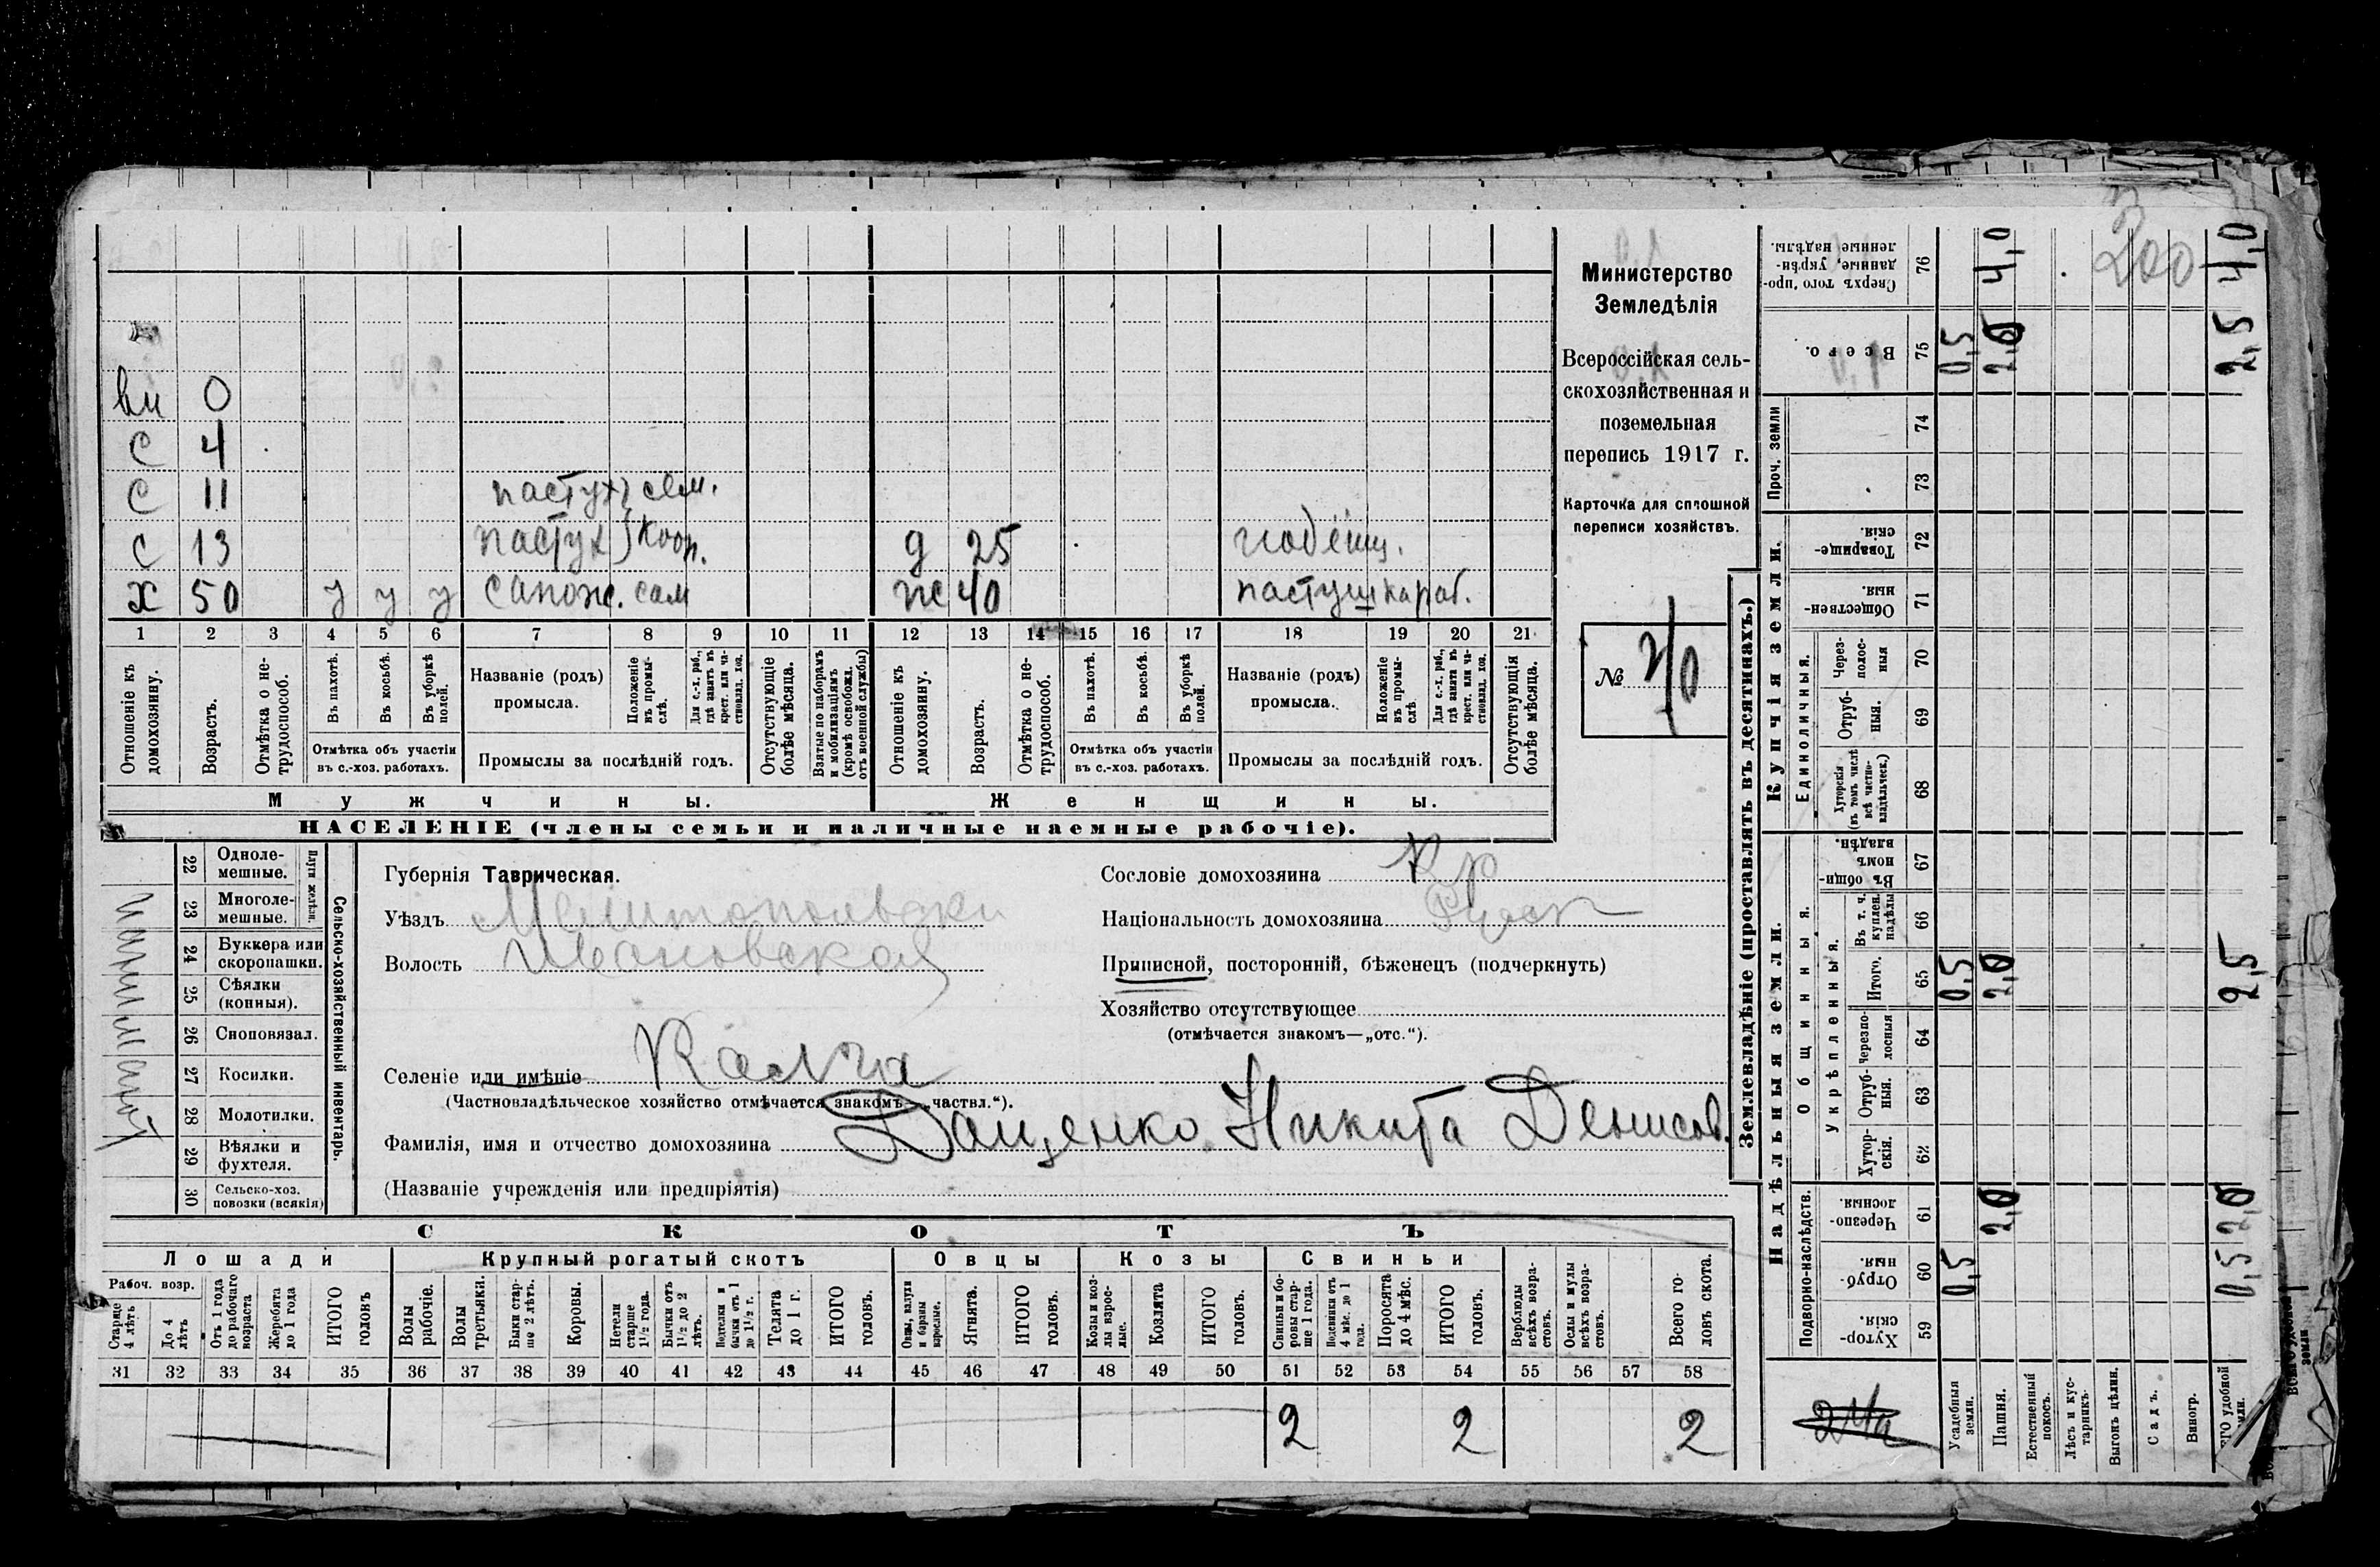 вн 0
с 4
с 11 пастух сем.
с 13 пастух кооп. д 25 подёнщ.
х 50 у у у сапож. сам ж 40 пастушка раб.
1 2 3 4 5 6 7 8 9 10 11 12 13 14 15 16 17 18 19 20 21
Отношеніе къ домохозяину.
Возрастъ.
Отмѣтка о нетрудоспособ.
Въ пахотѣ.
Въ косьбѣ.
Въ уборкѣ полей.
Отмѣтка объ участіи
въ с.-хоз. работахъ.
Названіе (родъ)
промысла.
Положеніе въ промыслѣ.
Для с.-х. раб., гдѣ занятъ въ крест. или частновлад. хоз.
Промыслы за послѣдній годъ.
Отсутствующіе болѣе мѣсяца.
Взятые по наборамъ и мобилизаціямъ (кромѣ освобожд. отъ военной службы)
Отношеніе къ домохозяину.
Возрастъ.
Отмѣтка о нетрудоспособ.
Въ пахотѣ.
Въ косьбѣ.
Въ уборкѣ полей.
Отмѣтка объ участіи
въ с.-хоз. работахъ.
Названіе (родъ)
промысла.
Положеніе въ промыслѣ.
Для с.-х. раб., гдѣ занята въ крест. или частновлад. хоз.
Промыслы за послѣдній годъ.
Отсутствующія болѣе мѣсяца.
Мужчины.
Женщины.
НАСЕЛЕНІЕ (члены семьи и наличные наемные рабочіе).
Министерство
Земледѣлія
Всероссійская сель-
скохозяйственная и
поземельная
перепись 1917 г.
Карточка для сплошной
переписи хозяйствъ.
№
22 Одноле-
мешные.
23 Многоле-
мешные.
Плуги желѣзн.
24 Буккера или
скоропашки.
25 Сѣялки
(конныя).
26 Сноповязал.
27 Косилки.
28 Молотилки.
29 Вѣялки и
фухтеля.
30 Сельско-хоз.
повозки (всякія)
Сельско-хозяйственный инвентарь.
Губернія Таврическая.
Уѣздъ Мелитопольски
Волость Ивановская
Селеніе или имѣніе
(Частновладѣльческое хозяйство отмѣчается знакомъ—„частвл.“).
Фамилія, имя и отчество домохозяина Даценко Никита Денисов.
(Названіе учрежденія или предпріятія)
Сословіе домохозяина Кр
Національность домохозяина Русск
Приписной, посторонній, бѣженецъ (подчеркнуть)
Хозяйство отсутствующее
(отмѣчается знакомъ—„отс.“).
СКОТЪ
Лошади
Крупный рогатый скотъ
Овцы
Козы
Свиньи
Рабоч. возр.
Старше 4 лѣтъ
До 4 лѣтъ
Отъ 1 года до рабочаго возраста
Жеребята до 1 года
ИТОГО головъ
Волы рабочіе.
Волы третьяки.
Быки старше 2 лѣтъ.
Коровы.
Нетели старше 1½ года.
Бычки отъ 1½ до 2 лѣтъ.
Подтелки и бычки отъ 1 до 1½ г.
Телята до 1 г.
ИТОГО головъ.
Овцы, валухи и бараны взрослые.
Ягнята.
ИТОГО головъ.
Козы и козлы взрослые.
Козлята
ИТОГО головъ.
Свиньи и боровы старше 1 года.
Подсвинки отъ 4 мѣс. до 1 года.
Поросята до 4 мѣс.
ИТОГО головъ.
Верблюды всѣхъ возрастовъ.
Ослы и мулы всѣхъ возрастовъ.
Всего головъ скота.
31 32 33 34 35 36 37 38 39 40 41 42 43 44 45 46 47 48 49 50 51 52 53 54 55 56 57 58
2 2 2
Землевладѣніе (проставлять въ десятинахъ.)
Надѣльныя земли.
Купчія земли.
Проч. земли
Подворно-наслѣдств.
Общинныя.
Укрѣпленныя.
Единоличныя.
Сверхъ того, проданные, укрѣпленные надѣлы. 76 4,0 200 4,0
Всего. 75 0,5 2,0 2,5
74
73
Товарищескія. 72
Общественныя. 71
Черезполосныя 70
Отрубныя. 69
Хуторскія (въ томъ числѣ всѣ частновладѣльческ.) 68
Въ общинномъ владѣн. 67
Въ т. ч. куплен. надѣлы 66
Итого. 65 0,5 2,0 2,5
Черезполосныя 64
Отрубныя. 63
Хуторскія. 62
Черезполосныя. 61 2,0 2,0
Отрубныя. 60 0,5 0,5
Хуторскія. 59
Усадебныя земли.
Пашня.
Естественный покосъ.
Лѣсъ и кустарникъ.
Выгонъ цѣлин.
Садъ.
Виногр.